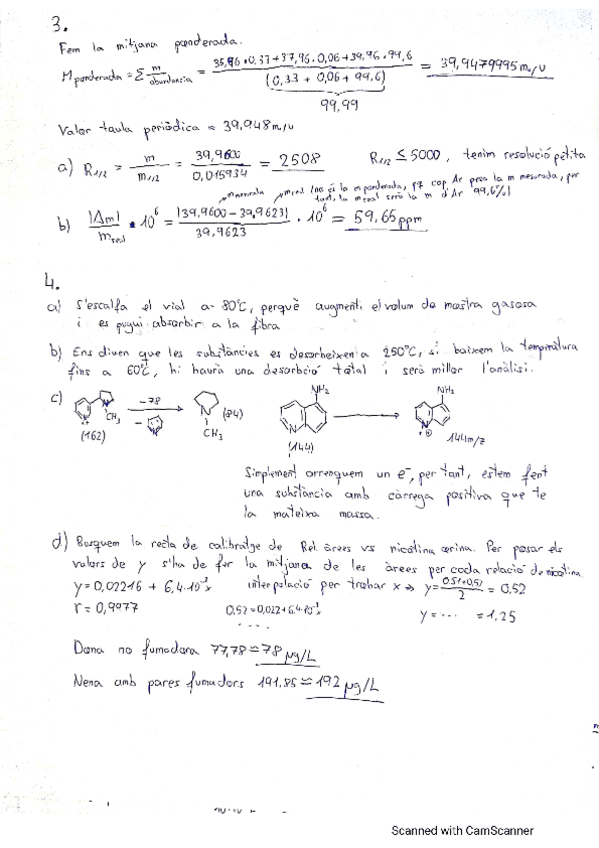 3.
Fem la mitjana ponderada.
M ponderada = Σ m/abundancia = 35,96·0,33+37,96·0,06+39,96·99,6 / (0,33 + 0,06 + 99,6) = 39,9479995 m/u
99,99
Valor taula periòdica = 39,948 m/u
a) R1/2 = m / m1/2 = 39,9600 / 0,015934 = 2508 R1/2 ≤ 5000, tenim resolució petita
m mesurada m real (no és la m ponderada, pq cap Ar pesa la m mesurada, per
tant, la m real serà la m d'Ar 99,6%)
b) |Δm| / m real · 10^6 = |39,9600 - 39,9623| / 39,9623 · 10^6 = 59,65 ppm
4.
a) S'escalfa el vial a 80°C, perquè augmenti el volum de mostra gasosa
i es pugui absorbir a la fibra
b) Ens diuen que les substàncies es desorbeixen a 250°C, si baixem la temperatura
fins a 60°C, hi haurà una desorbció total i serà millor l'anàlisi.
c) -78 NH2 NH2
N CH3 N (84) N N
(162) CH3 (144) 144 m/z
Simplement arrenquem un e-, per tant, estem fent
una substància amb càrrega positiva que te
la mateixa massa.
d) Busquem la recta de calibratge de Rel. àrees vs nicotina orina. Per posar els
valors de y s'ha de fer la mitjana de les àrees per cada relació de nicotina
y = 0,02216 + 6,4·10^-3x interpolació per trobar x → y = 0,51+0,52 / 2 = 0,52
r = 0,9977 0,52 = 0,022+6,4·10^-3x y = ... = 1,25
....
Dona no fumadora 77,78 ≈ 78 µg/L
Nena amb pares fumadors 191,85 ≈ 192 µg/L
Scanned with CamScanner